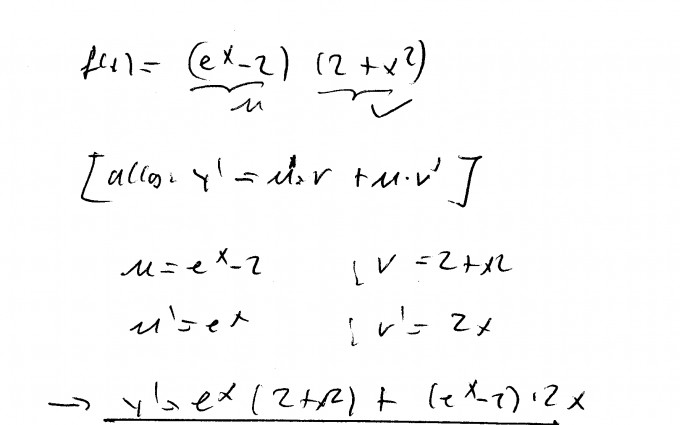 f(x) = (e^x - 2) (2 + x^2)
u v
[allg.: y' = u'·v + u·v']
u = e^x - 2 ; v = 2 + x^2
u' = e^x ; v' = 2x
→ y' = e^x (2 + x^2) + (e^x - 2) · 2x